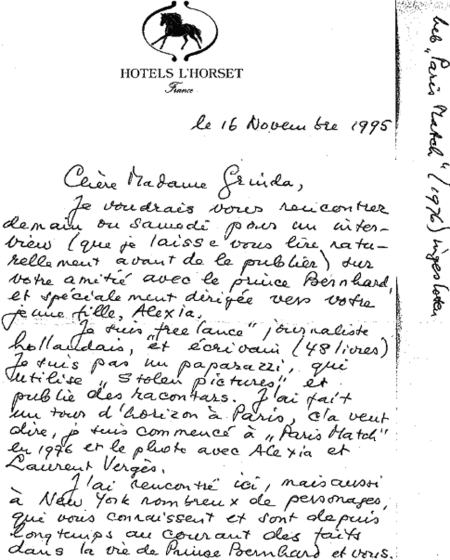 HOTELS L'HORSET
France
le 16 Novembre 1995
Chère Madame Grinda,
Je voudrais vous rencontrer
demain ou samedi pour un inter-
view (que je laisse vous lire natu-
rellement avant de le publier) sur
votre amitié avec le prince Bernhard,
et spécialement dirigée vers votre
jeune fille, Alexia.
Je suis "free lance" journaliste
hollandais, et écrivain (48 livres)
Je suis pas un paparazzi, qui
utilise "Stolen pictures" et
publie des racontars. J'ai fait
un tour d'horizon à Paris, c'a veut
dire, je suis commencé à "Paris Match"
en 1976 et le photo avec Alexia et
Laurent Vergès.
J'ai rencontré ici, mais aussi
à New York nombreux de personages,
qui vous connaissent et sont depuis
longtemps au courant des faits
dans la vie de Prince Bernhard et vous.
heb "Paris Match" (1976) ingesloten